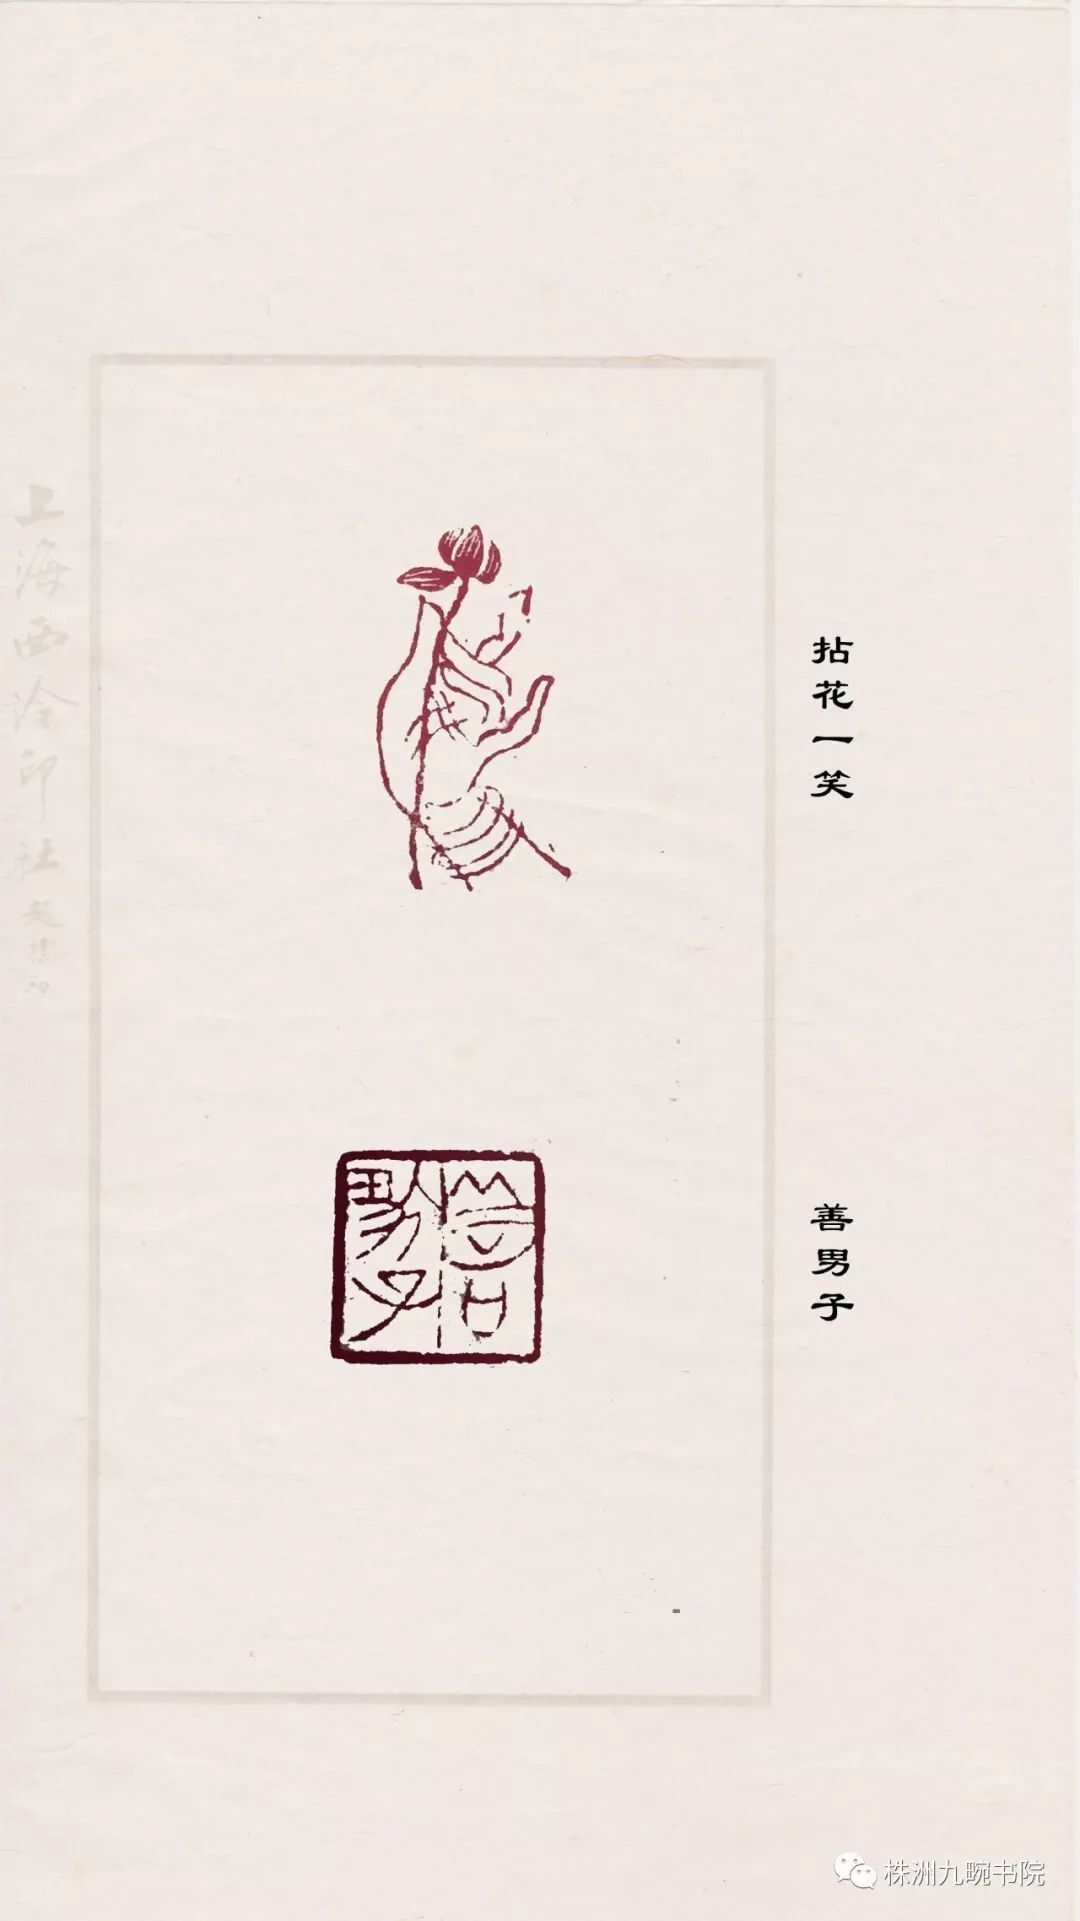 拈花一笑
善男子
善男子
上海西泠印社
株洲九畹书院